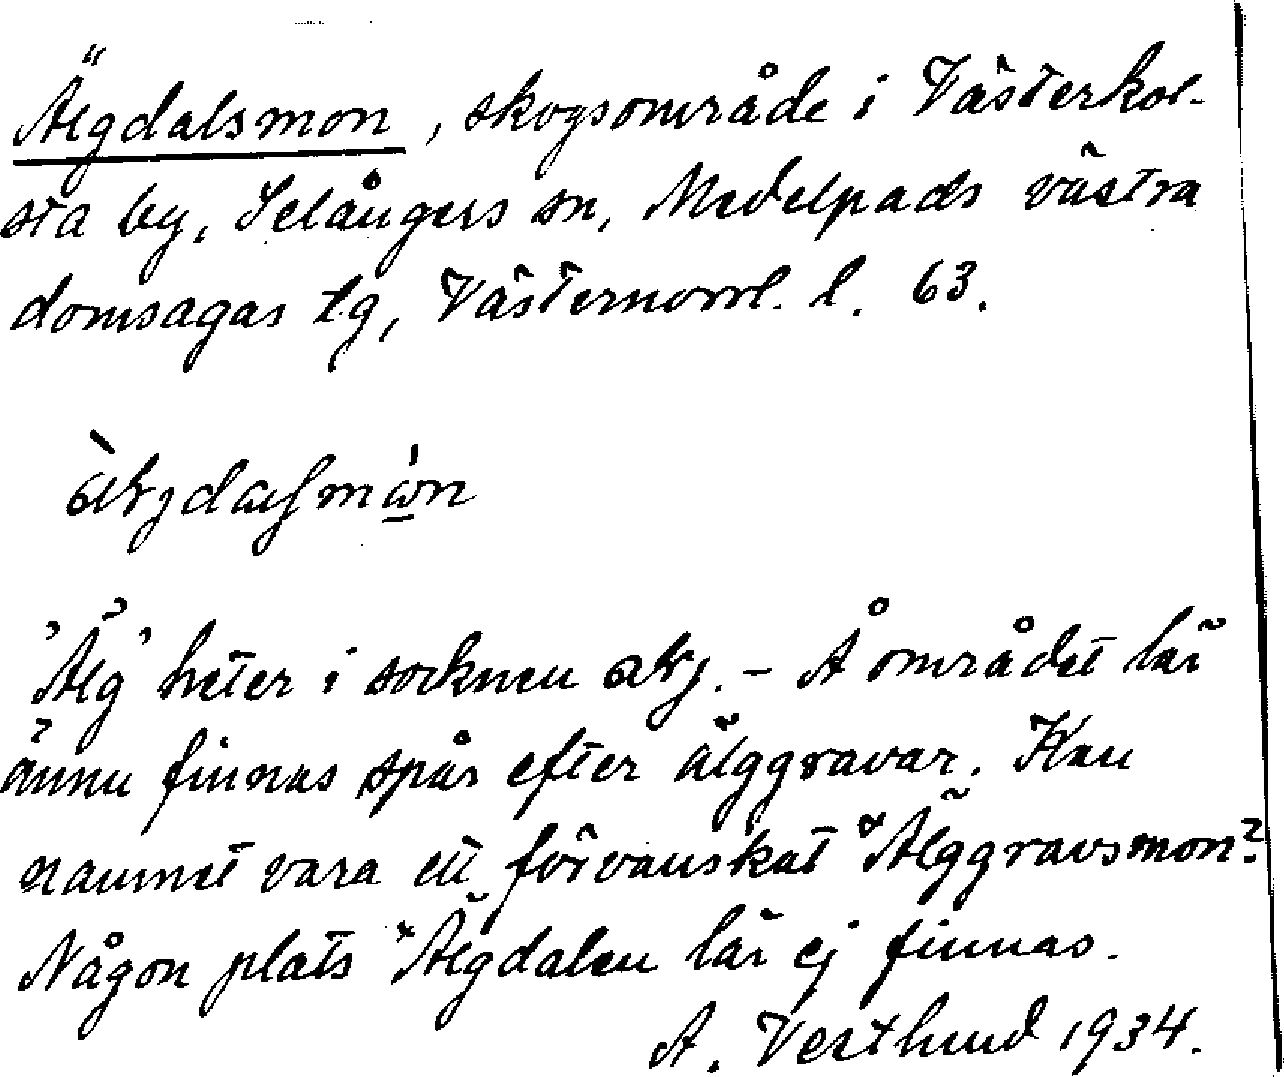 Älgdalsmon, skogsområde i Västerkol-
sta by, Selångers sn, Medelpads västra
domsagas tg, Västernorrl. l. 63.
'Älg' heter i socknen älj. – Å området lär
ännu finnas spår efter älggravar. Kan
namnet vara ett förvanskat *Älggravsmon?
Någon plats *Älgdalen lär ej finnas.
A. Vestlund 1934.